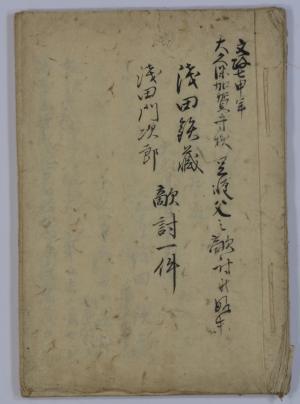 文政七申年
大久保加賀守様 足軽父之敵討
浅田鉄蔵
浅田門次郎
敵討一件